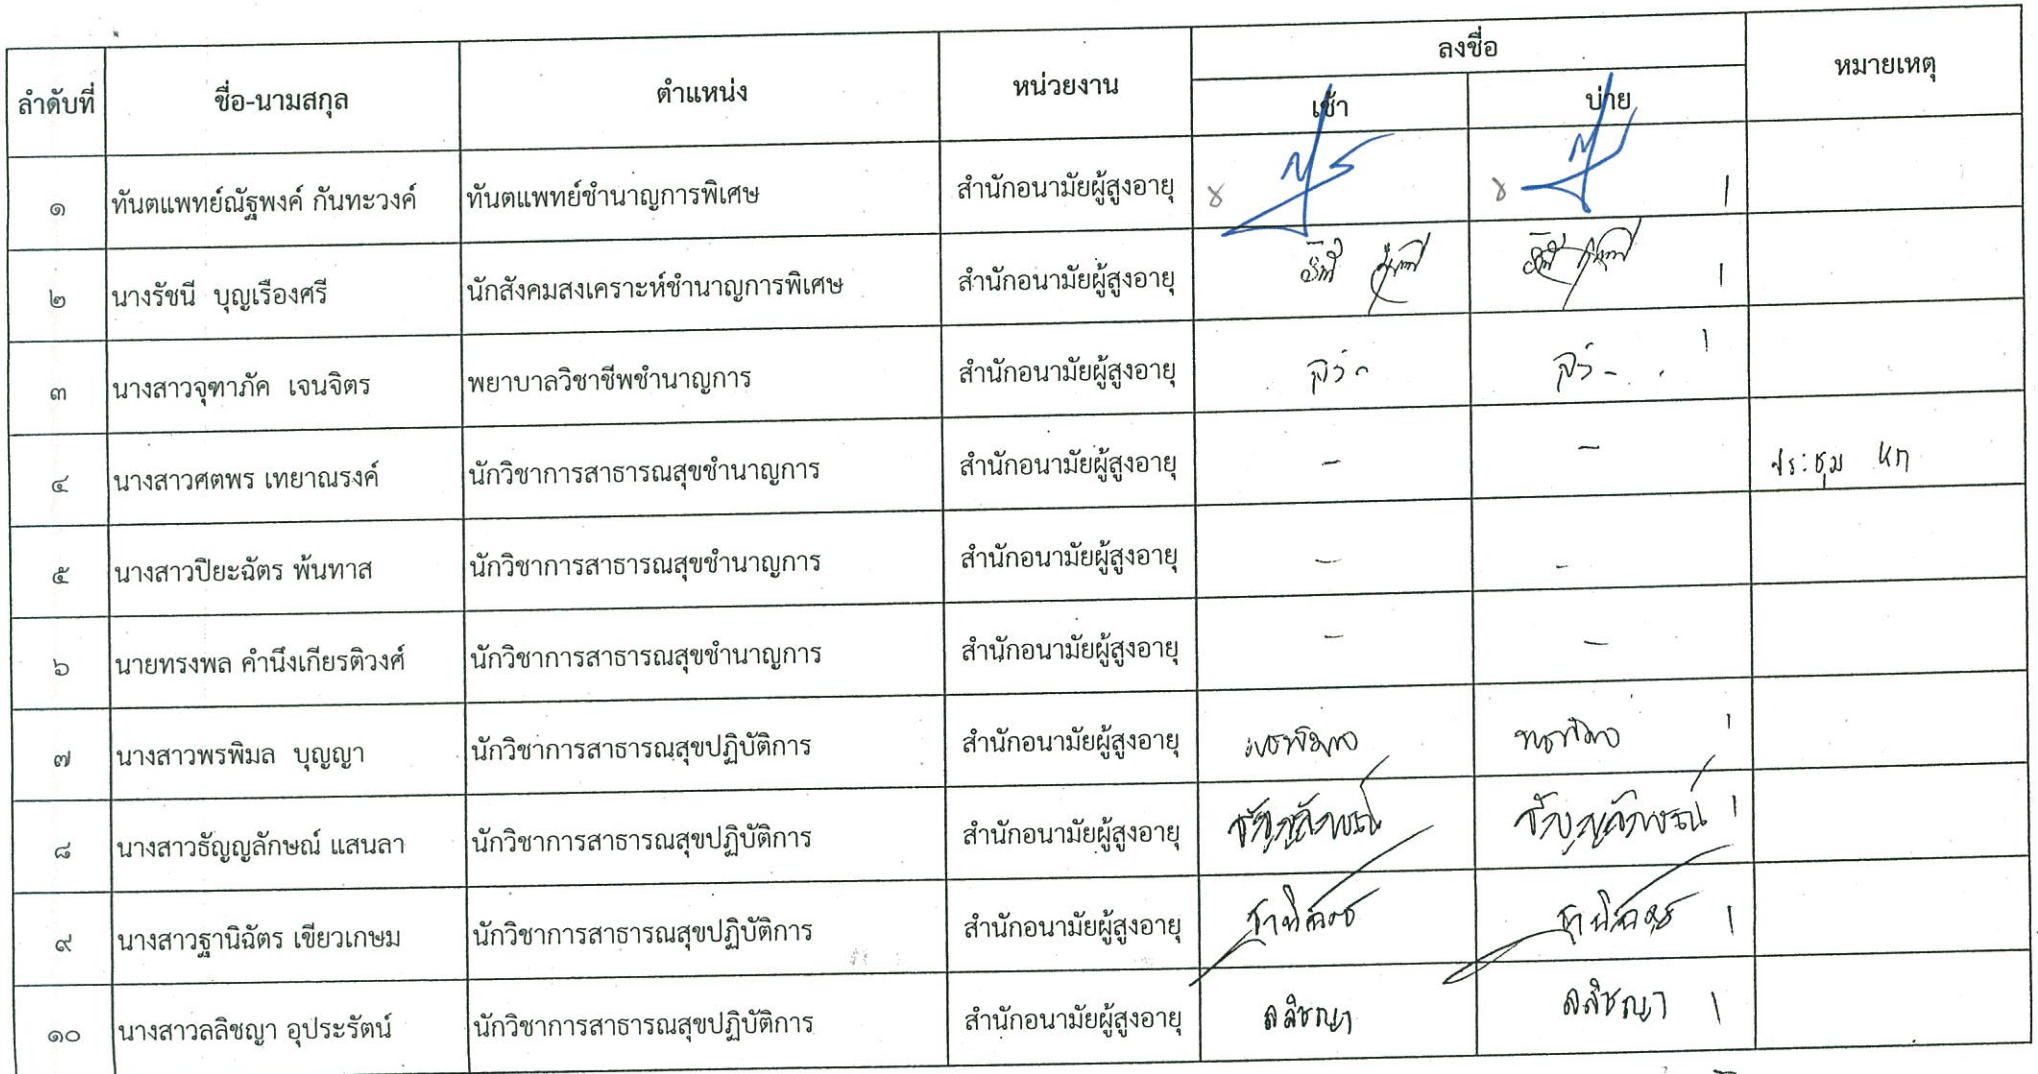 ลำดับที่ ชื่อ-นามสกุล ตำแหน่ง หน่วยงาน ลงชื่อ หมายเหตุ
เช้า บ่าย
๑ ทันตแพทย์ณัฐพงค์ กันทะวงค์ ทันตแพทย์ชำนาญการพิเศษ สำนักอนามัยผู้สูงอายุ
๒ นางรัชนี บุญเรืองศรี นักสังคมสงเคราะห์ชำนาญการพิเศษ สำนักอนามัยผู้สูงอายุ
๓ นางสาวจุฑาภัค เจนจิตร พยาบาลวิชาชีพชำนาญการ สำนักอนามัยผู้สูงอายุ
๔ นางสาวศตพร เทยาณรงค์ นักวิชาการสาธารณสุขชำนาญการ สำนักอนามัยผู้สูงอายุ - - ประชุม
๕ นางสาวปิยะฉัตร พ้นทาส นักวิชาการสาธารณสุขชำนาญการ สำนักอนามัยผู้สูงอายุ - -
๖ นายทรงพล คำนึงเกียรติวงศ์ นักวิชาการสาธารณสุขชำนาญการ สำนักอนามัยผู้สูงอายุ - -
๗ นางสาวพรพิมล บุญญา นักวิชาการสาธารณสุขปฏิบัติการ สำนักอนามัยผู้สูงอายุ พรพิมล พรพิมล
๘ นางสาวธัญญลักษณ์ แสนลา นักวิชาการสาธารณสุขปฏิบัติการ สำนักอนามัยผู้สูงอายุ ธัญญลักษณ์ ธัญญลักษณ์
๙ นางสาวฐานิฉัตร เขียวเกษม นักวิชาการสาธารณสุขปฏิบัติการ สำนักอนามัยผู้สูงอายุ ฐานิฉัตร ฐานิฉัตร
๑๐ นางสาวลลิชญา อุประรัตน์ นักวิชาการสาธารณสุขปฏิบัติการ สำนักอนามัยผู้สูงอายุ ลลิชญา ลลิชญา